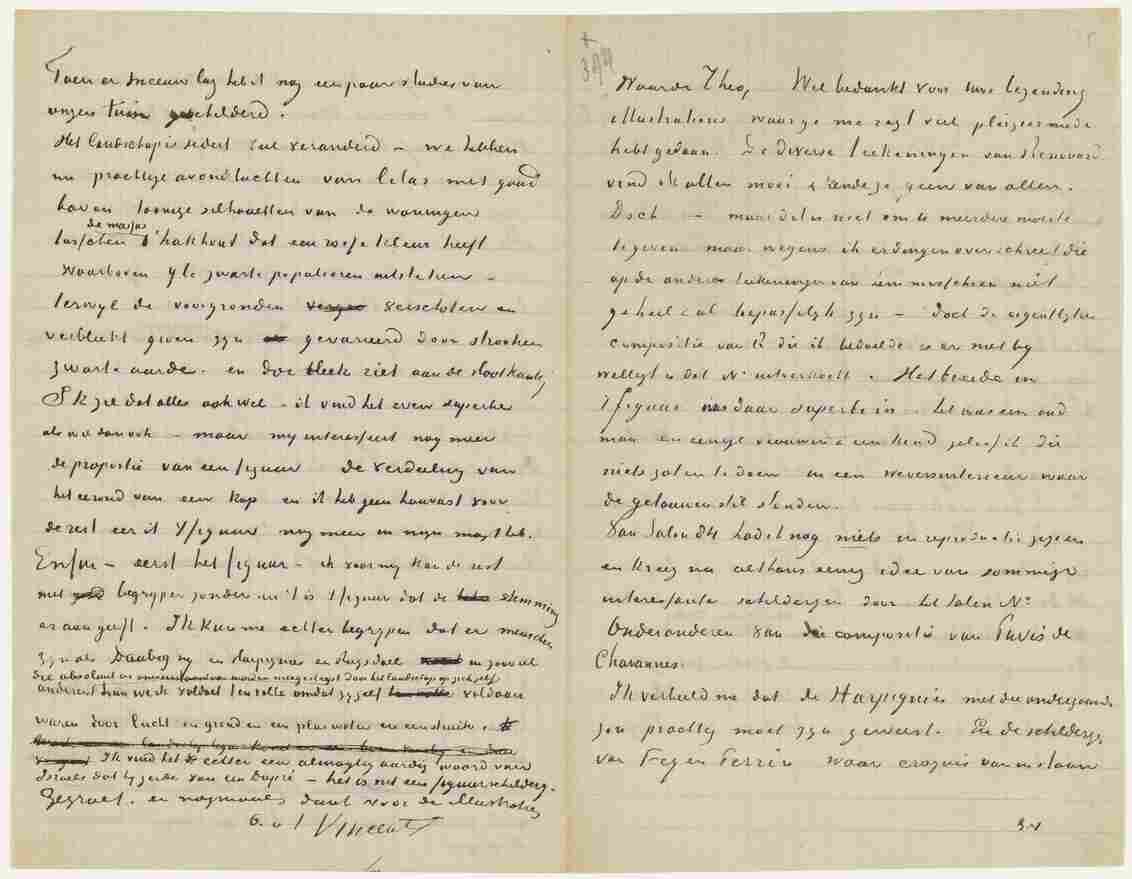 Toen er sneeuw lag heb ik nog een paar studies van
onzen tuin geschilderd.
Het landschap is sedert zeer veranderd – we hebben
nu prachtige avondluchten van lilas met goud
boven toonige silhouetten van de woningen
de massas
tusschen 't hakhout dat een rosse kleur heeft
waarboven ijle zwarte populieren uitsteken –
terwijl de voorgronden verschoten en
verbleekt groen zyn gevarieerd door strooken
zwarte aarde. en dor bleek riet aan de slootkanten
Ik zie dat alles ook wel – ik vind het even superbe
als wie dan ook – maar my interesseert nog meer
de proportie van een figuur de verdeeling van
het ovaal van een kop en ik heb geen houvast voor
de rest eer ik 't figuur nog meer in myn magt heb.
Enfin – eerst het figuur – ik voor my kan de rest
niet begrijpen zonder en 't is 't figuur dat de stemming
er aan geeft. Ik kan me echter begrypen dat er menschen
zyn als Daubigny en Harpignies en Ruysdael en zooveel
die absoluut en onweerstaanbaar worden meegesleept door het landschap op zich zelf
anderen hun werk voldoet ten volle omdat zy zelf voldaan
waren door lucht en grond en een plas water en een struik.
Ik vind het echter een almagtig aardig woord van
Israels dat hy zeide van een Dupré – het is net een figuurschildery.
Gegroet. en nogmaals dank voor de illustraties
b. à t. Vincent
394
Waarde Theo, Wel bedankt voor Uwe toezending
illustraties waar ge me zegt veel pleizier mede
hebt gedaan. De diverse teekeningen van Renouard
vind ik allen mooi & kende ze geen van allen.
Doch – maar dat is niet om U meerdere moeite
te geven maar wegens ik er dingen over schreef die
op de andere teekeningen van hem misschien niet
geheel zal toepasselyk zyn – doch de eigentlyke
compositie van U die ik bedoelde is er niet by
welligt is dat No uitverkocht. Het breede in
't figuur was daar superbe in. Het was een oud
man en eenige vrouwen & een kind geloof ik die
niets zaten te doen in een weversinterieur waar
de getouwen stil stonden.
Van Salon 84 had ik nog niets in reproductie gezien
en kreeg nu althans eenig idee van sommige
interessante schilderyen door het Salon No
Onder anderen van die compositie van Puvis de
Chavannes.
Ik verbeeld me dat de Harpignies met die ondergaande
zon prachtig moet zyn geweest. En de schildery
van Feyen Perrin waar croquis van in staan